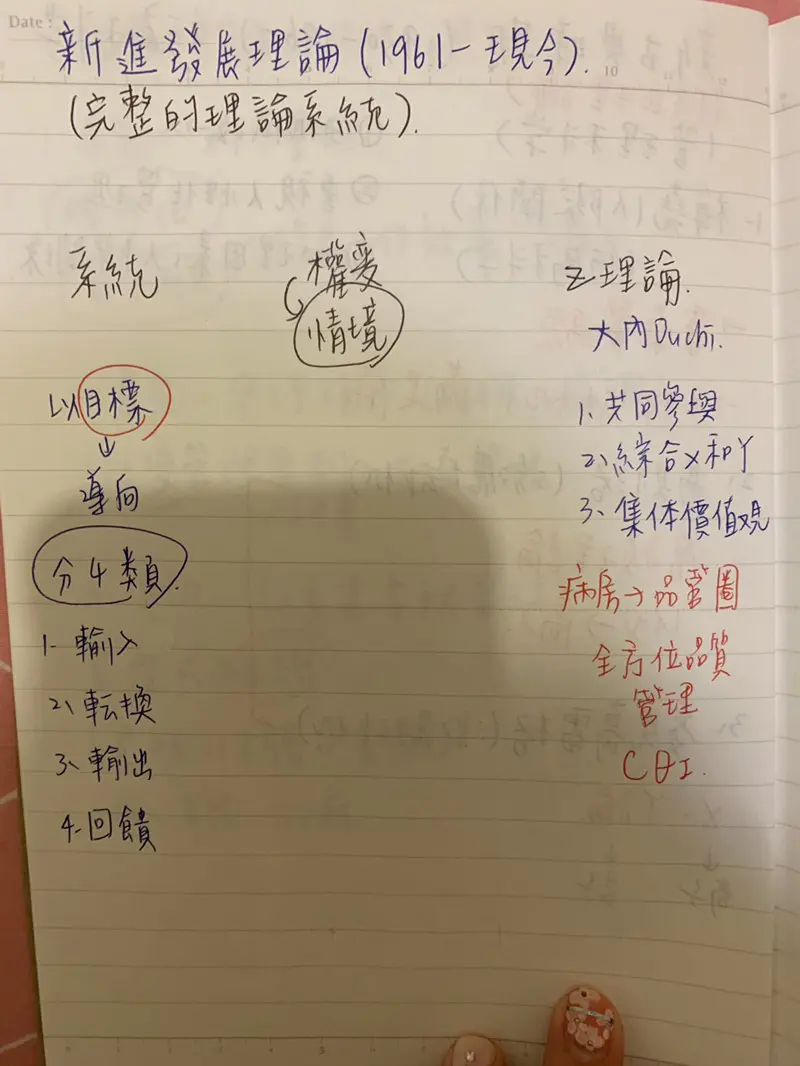 Date :
新進發展理論(1961-現今).
(完整的理論系統).
系統
以目標
↓
導向
分4類.
1. 輸入
2、転換
3、輸出
4. 回饋
權變
情境
Z理論.
大內Ouchi.
1、共同參與
2、綜合X和Y
3、集体價值观
病房→品管圈
全方位品質
管理
CQI.